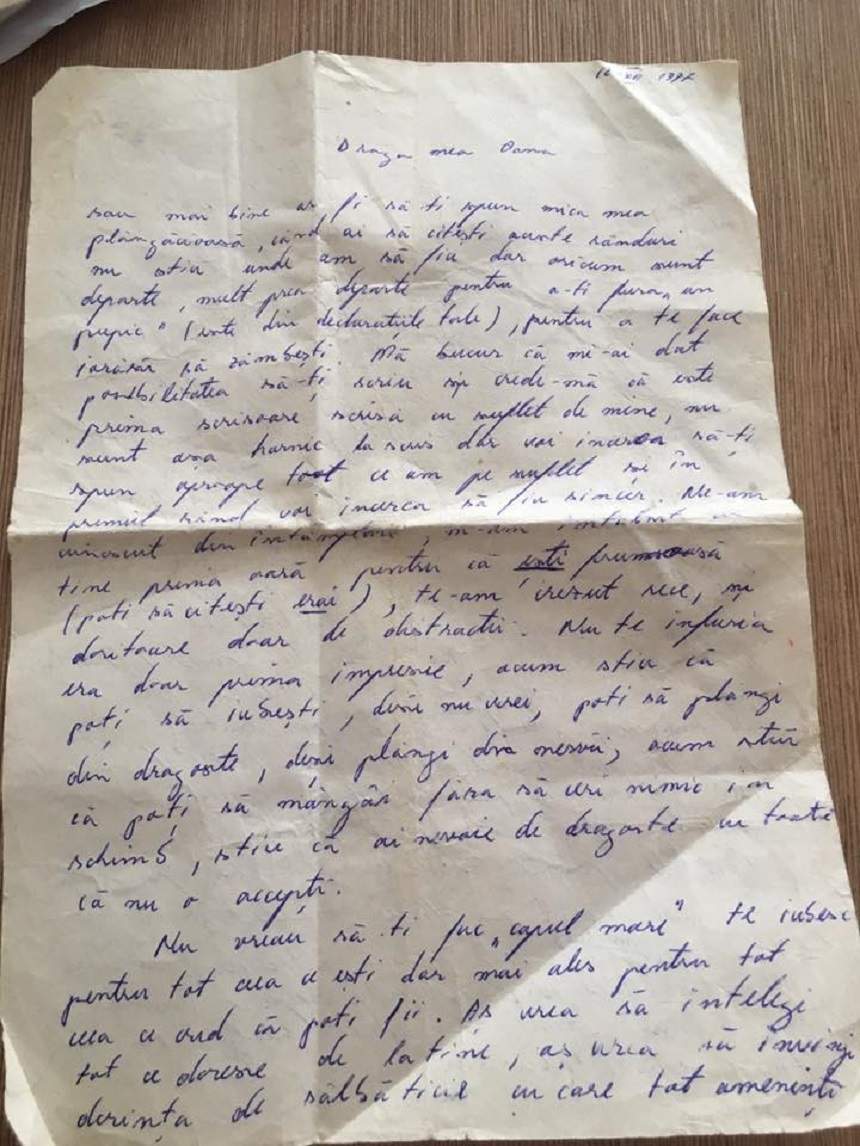 XII 1997
Draga mea Oana
sau mai bine as fi să-ti spun mica mea
plângăcioasă, când ai să citești aceste rânduri
nu stiu unde am să fiu dar oricum sunt
departe, mult prea departe pentru a-ti fura „un
pupic" (este din declaratiile tale), pentru a te face
iarăsi să zâmbești. Mă bucur că mi-ai dat
posibilitatea să-ți scriu și crede-mă că este
prima scrisoare scrisă cu suflet de mine, nu
sunt asa harnic la scris dar voi încerca să-ți
spun aproape tot ce am pe suflet și în
primul rând voi incerca să fiu sincer. Ne-am
cunoscut din întâmplare, m-am
tine prima oară pentru că esti frumoasă
(poti să citești erai), te-am crezut rece, si
doritoare doar de distractii. Nu te infuria
era doar prima impresie, acum stiu că
poți să iubești, desi nu vrei, poti să plângi
din dragoste, deși plangi din nervi, acum stiu
că poți să mângâi făra să ceri nimic in
schimb, stiu că ai nevoie de dragoste cu toate
că nu o accepți.
Nu vreau să-ti fac „capul mare" te iubesc
pentru tot ceea ce esti dar mai ales pentru tot
ceea ce cred că poti fii. Aș vrea să intelegi
tot ce doresc de la tine, aș vrea să învingi
dorința de sălbăticie cu care tot amenințti